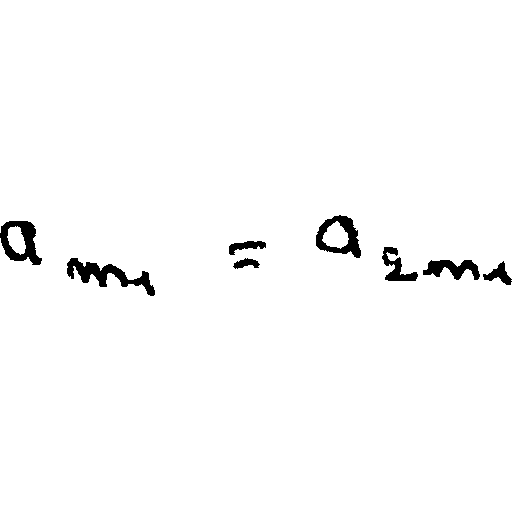 a_{m1} = a_{2m1}